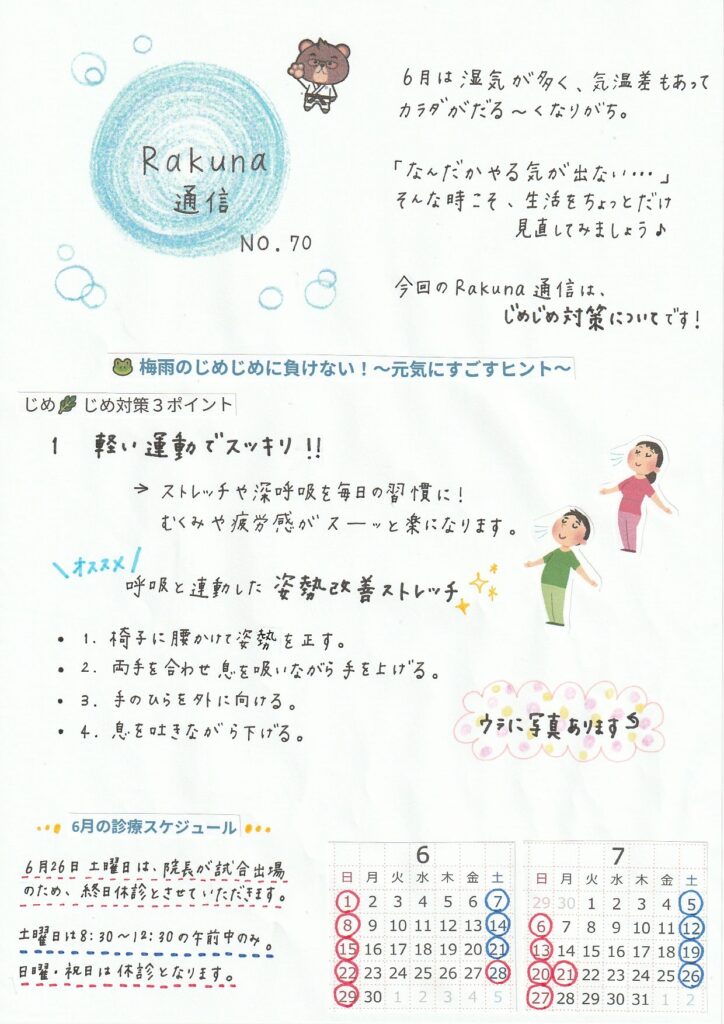 Rakuna
通信
NO.70
6月は湿気が多く、気温差もあって
カラダがだる～くなりがち。
「なんだかやる気が出ない…」
そんな時こそ、生活をちょっとだけ
見直してみましょう♪
今回のRakuna通信は、
じめじめ対策についてです!
🐸 梅雨のじめじめに負けない！～元気にすごすヒント～
じめ🌿じめ対策３ポイント
1 軽い運動でスッキリ!!
→ ストレッチや深呼吸を毎日の習慣に!
むくみや疲労感がスーッと楽になります。
\オススメ/
呼吸と連動した 姿勢改善ストレッチ
• 1. 椅子に腰かけて姿勢を正す。
• 2. 両手を合わせ息を吸いながら手を上げる。
• 3. 手のひらを外に向ける。
• 4. 息を吐きながら下げる。
ウラに写真あります
6月の診療スケジュール
6月26日 土曜日は、院長が試合出場
のため、終日休診とさせていただきます。
土曜日は8:30～12:30の午前中のみ。
日曜・祝日は休診となります。
6
日 月 火 水 木 金 土
1 2 3 4 5 6 7
8 9 10 11 12 13 14
15 16 17 18 19 20 21
22 23 24 25 26 27 28
29 30 1 2 3 4 5
7
日 月 火 水 木 金 土
29 30 1 2 3 4 5
6 7 8 9 10 11 12
13 14 15 16 17 18 19
20 21 22 23 24 25 26
27 28 29 30 31 1 2